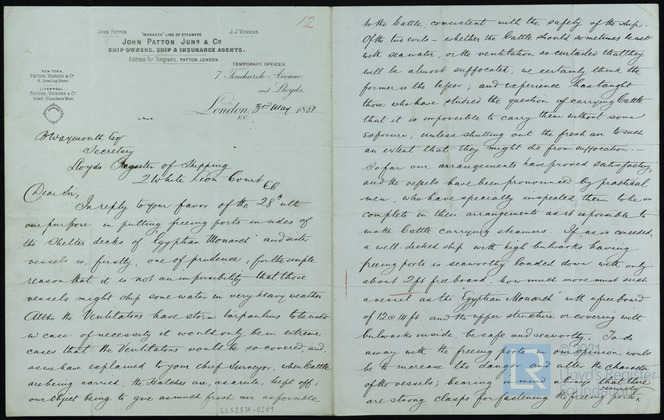 12
"MONARCH" LINE OF STEAMERS.
JOHN PATTON. J. J. VICKERS.
JOHN PATTON JUNR & CO
SHIP OWNERS, SHIP & INSURANCE AGENTS.
Address for Telegrams, PATTON, LONDON.
NEW YORK,
PATTON, VICKERS & Co
LIVERPOOL,
PATTON, VICKERS & Co
TEMPORARY OFFICES,
7, Fenchurch Avenue,
and Lloyds,
London, 3rd May 1881
E.C.
B Waymouth Esq
Secretary
Lloyds Register of Shipping
2 White Lion Court EC
Dear Sir,
In reply to your favor of the 28th ulto
our purpose in putting freeing ports in sides of
the shelter decks of "Egyptian Monarch" and sister
vessels is, firstly, one of prudence, for the simple
reason that it is not an impossibility that those
vessels might ship some water in very heavy weather
Altho' the Ventilators have storm tarpaulins to be used
in case of necessity it would only be in extreme
cases that the Ventilators would be so covered, and,
as we have explained to your Chief Surveyor, when Cattle
are being carried, the Hatches are, as a rule, kept off,
our object being to give as much fresh air as possible
GLSISKA-0209
to the Cattle consistent with the safety of the ship.
Of the two evils - whether the Cattle should sometimes be wet
with sea water, or the ventilation so curtailed that they
will be almost suffocated, we certainly think the
former is the lesser; and experience has taught
those who have studied the question of carrying Cattle
that it is impossible to carry them without some
exposure, unless shutting out the fresh air to such
an extent that they might die from suffocation. -
So far our arrangements have proved satisfactory,
and the vessels have been pronounced by practical
men, who have specially inspected them to be as
complete in their arrangements as it is possible to
make Cattle carrying steamers. If, as is conceded,
a well decked ship with high bulwarks having
freeing ports is seaworthy loaded down with only
about 2ft freeboard, how much more must such
a vessel as the "Egyptian Monarch" with a freeboard
of 12 @ 14 ft and the upper structure or covering with
bulwarks inside, be safe and seaworthy. To do
away with the freeing ports in our opinion, would
be to increase the danger and alter the character
of the vessels; bearing in mind they that there
are strong clasps for fastening the freeing ports